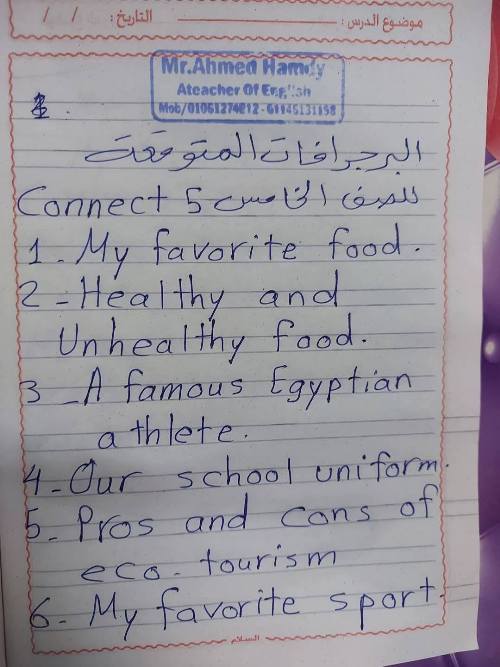 موضوع الدرس : التاريخ : / /
Mr.Ahmed Hamdy
Ateacher Of English
البرجرافات المتوقعة
Connect 5 للصف الخامس
1 - My favorite food.
2 - Healthy and
Unhealthy food.
3 - A famous Egyptian
athlete.
4 - Our school uniform.
5 - Pros and cons of
eco - tourism
6 - My favorite sport.
السلام